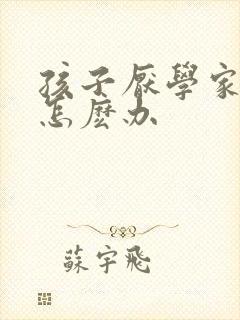 孩子厭學家
怎麼办
蘇宇飛